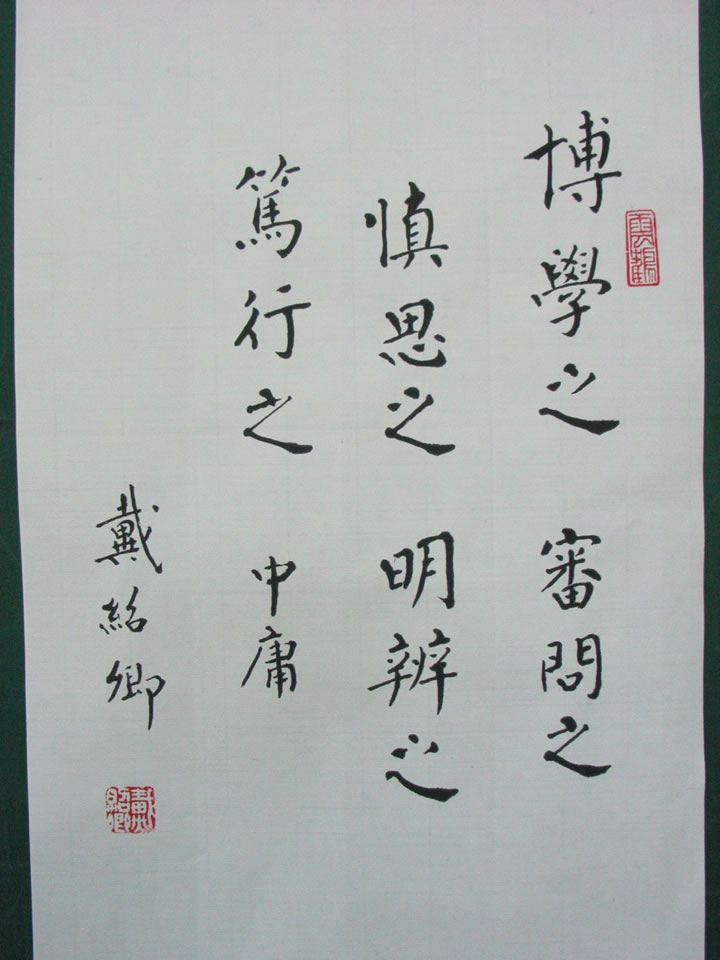 博學之 審問之
慎思之 明辨之
篤行之 中庸
戴紹卿
戴紹卿